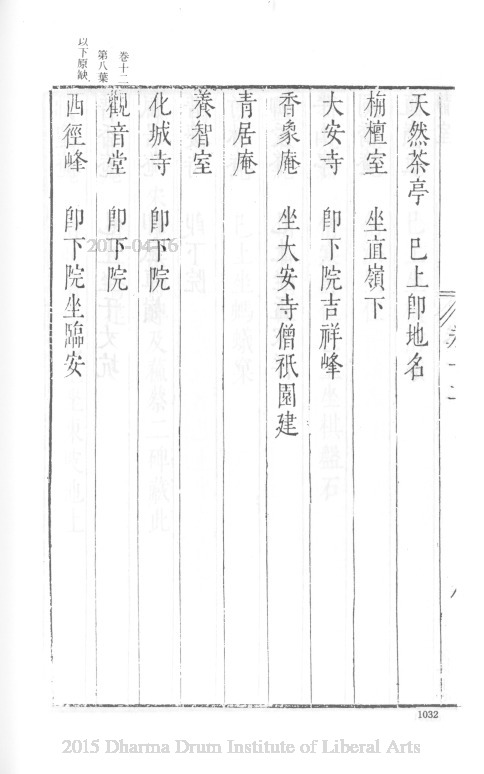 天然茶亭　已上卽地名
栴檀室　坐直嶺下
大安寺　卽下院吉祥峰
香象庵　坐大安寺僧祇園建
青居庵
養智室
化城寺　卽下院
觀音堂　卽下院
西徑峰　卽下院坐臨安
卷十二
第八葉
以下原缺
1032
2015-04-16
2015 Dharma Drum Institute of Liberal Arts